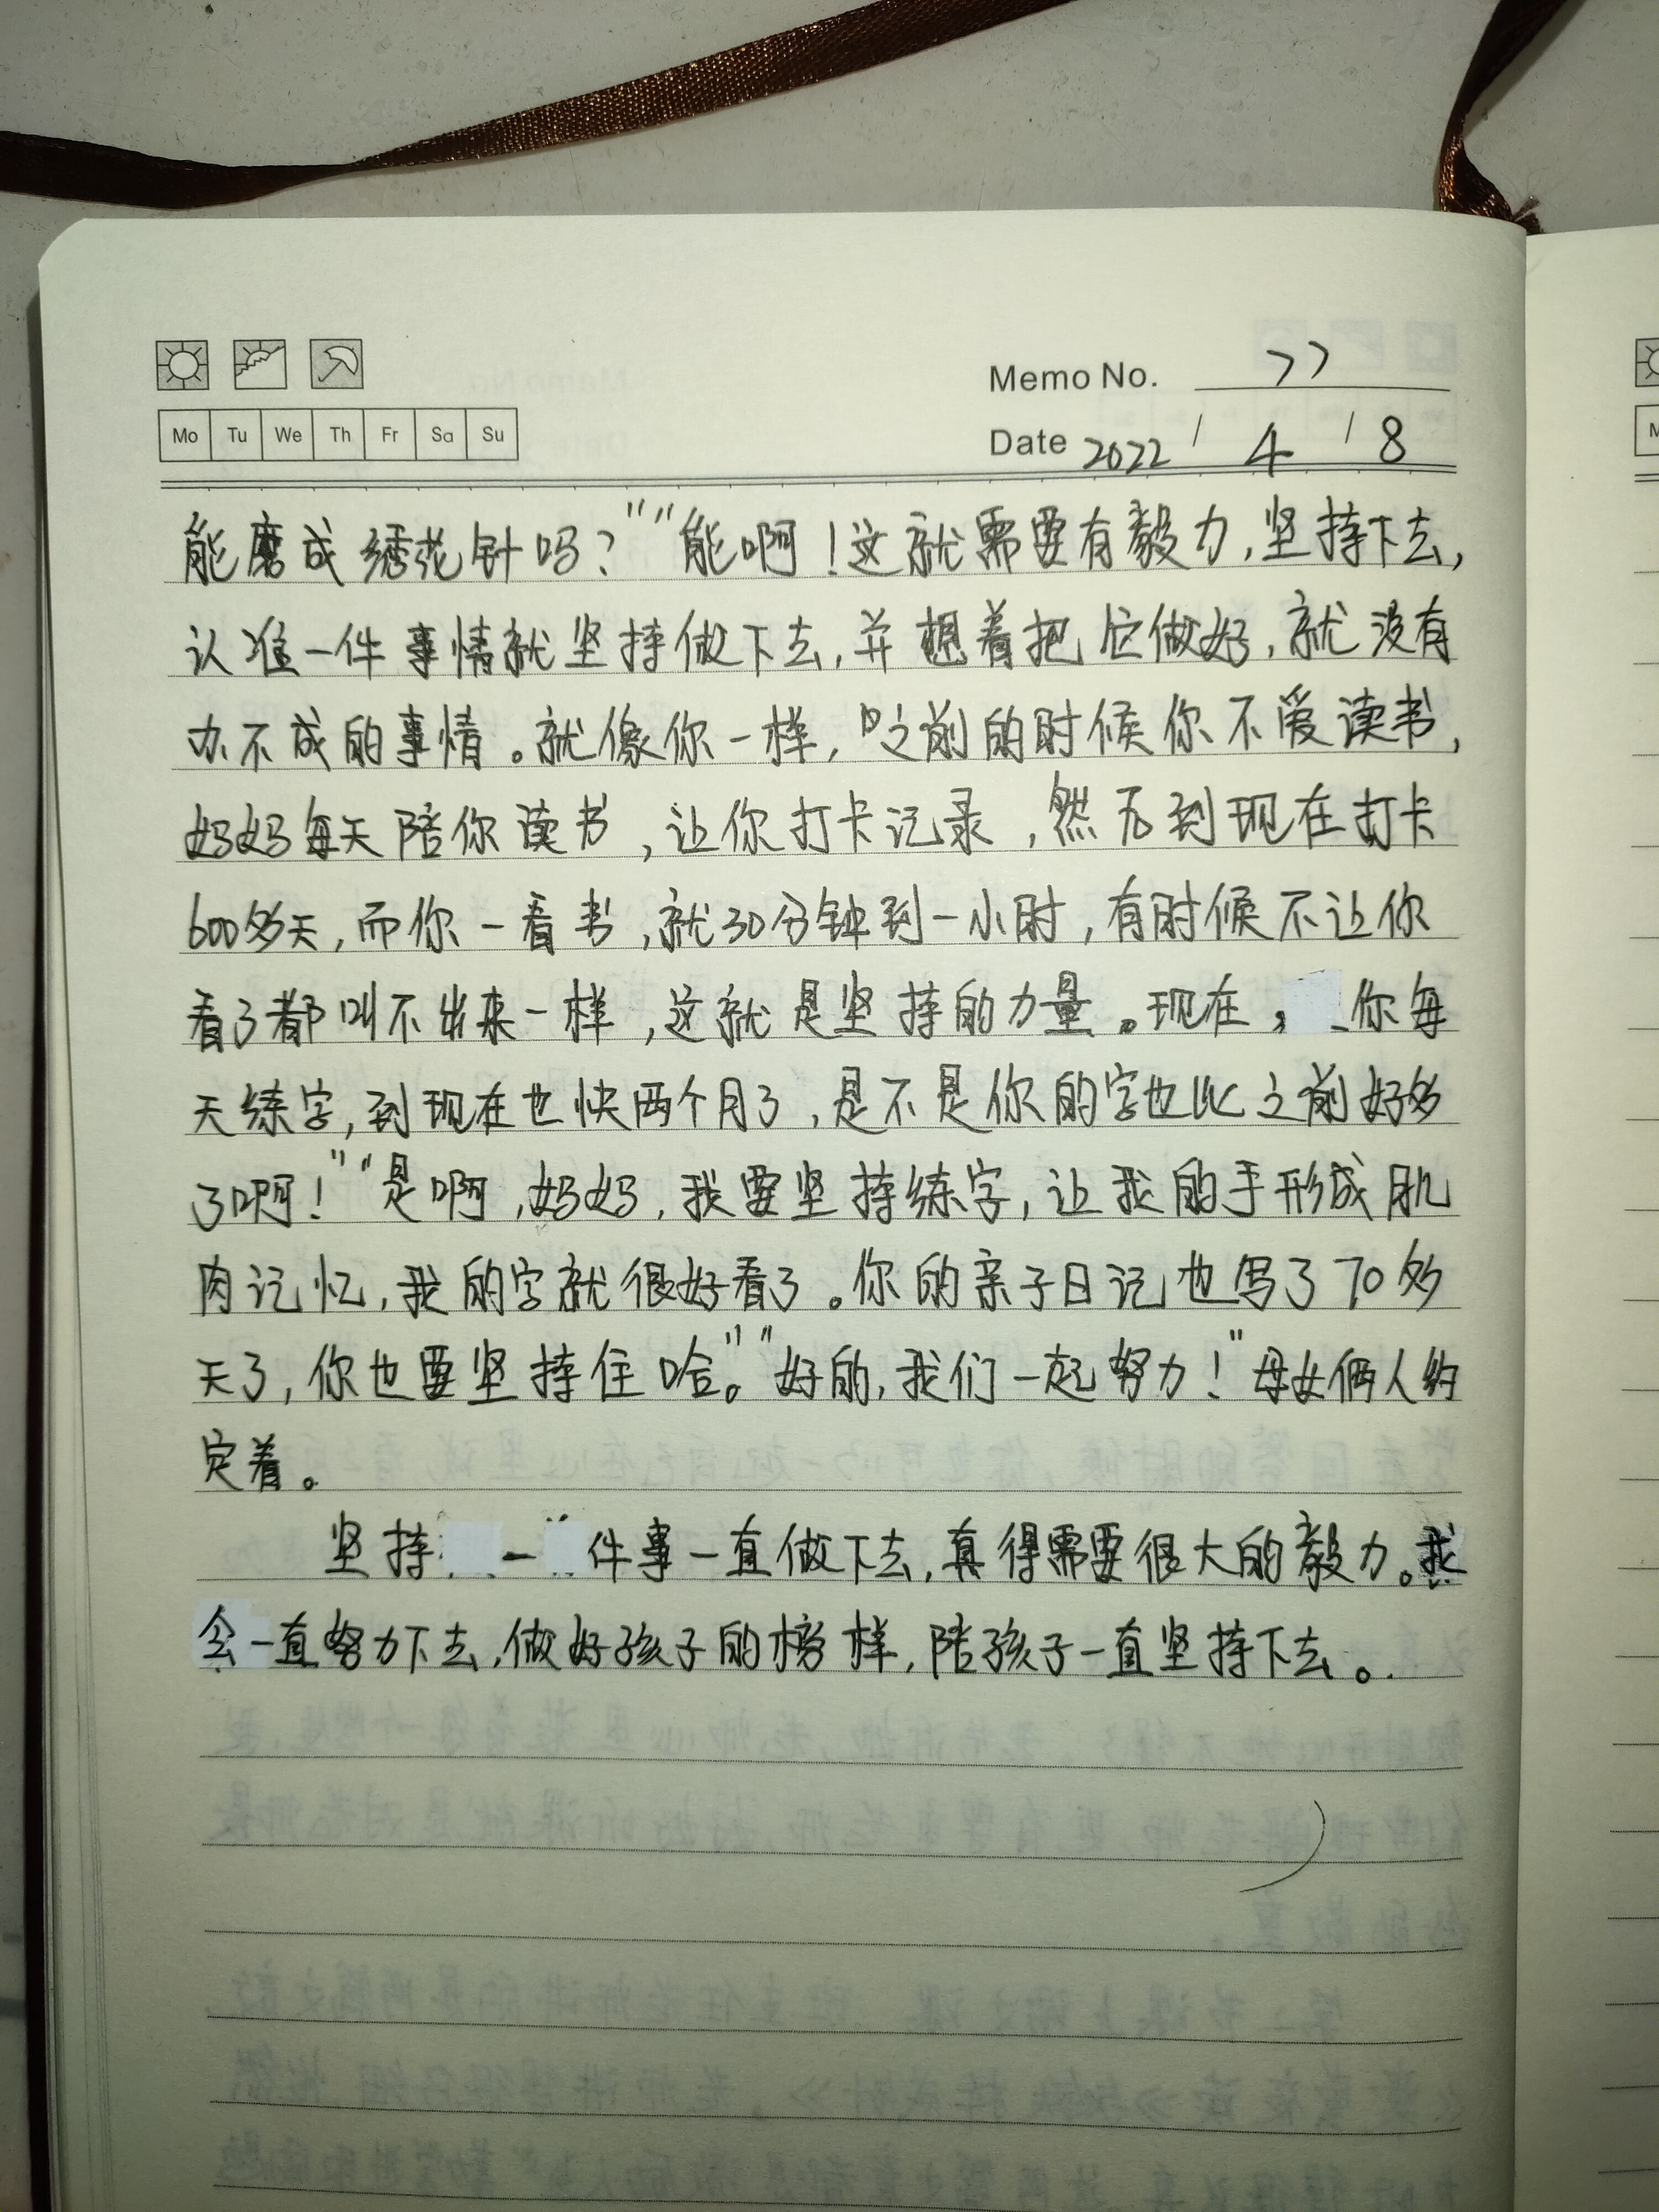 Memo No. 77
Mo Tu We Th Fr Sa Su
Date 2022 / 4 / 8
能磨成绣花针吗？”“能啊！这就需要有毅力，坚持下去，
认准一件事情就坚持做下去，并想着把它做好，就没有
办不成的事情。就像你一样，之前的时候你不爱读书，
妈妈每天陪你读书，让你打卡记录，然后到现在打卡
600多天，而你一看书，就30分钟到一小时，有时候不让你
看了都叫不出来一样，这就是坚持的力量。现在，你每
天练字，到现在也快两个月了，是不是你的字也比之前好多
了啊！”“是啊，妈妈，我要坚持练字，让我的手形成肌
肉记忆，我的字就很好看了。你的亲子日记也写了70多
天了，你也要坚持住哈。”“好的，我们一起努力！”母女俩人约
定着。
坚持一件事一直做下去，真得需要很大的毅力。我
会一直努力下去，做好孩子的榜样，陪孩子一直坚持下去。